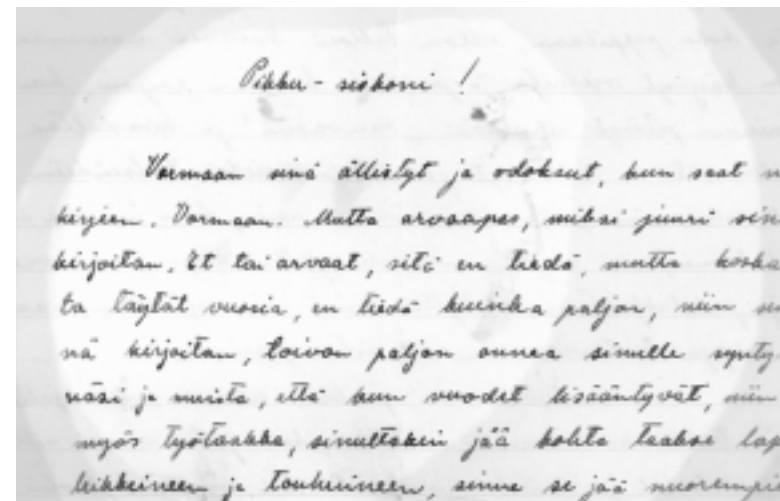 Pikku-siskoni!
Varmaan sinä ällistyt ja odoksut, kun saat
kirjeen. Varmaan. Mutta arvaapas, miksi juuri sin
kirjoitan. Et tai arvaat, sitä en tiedä, mutta koska
ta täytät vuosia, en tiedä kuinka paljon, niin
nä kirjoitan, toivon paljon onnea sinulle synty
näsi ja muista, että kun vuodet lisääntyvät, niin
myös työtaakka, sinultakin jää kohta taakse lap
leikkeineen ja touhuineen, sinne se jää nuorempi